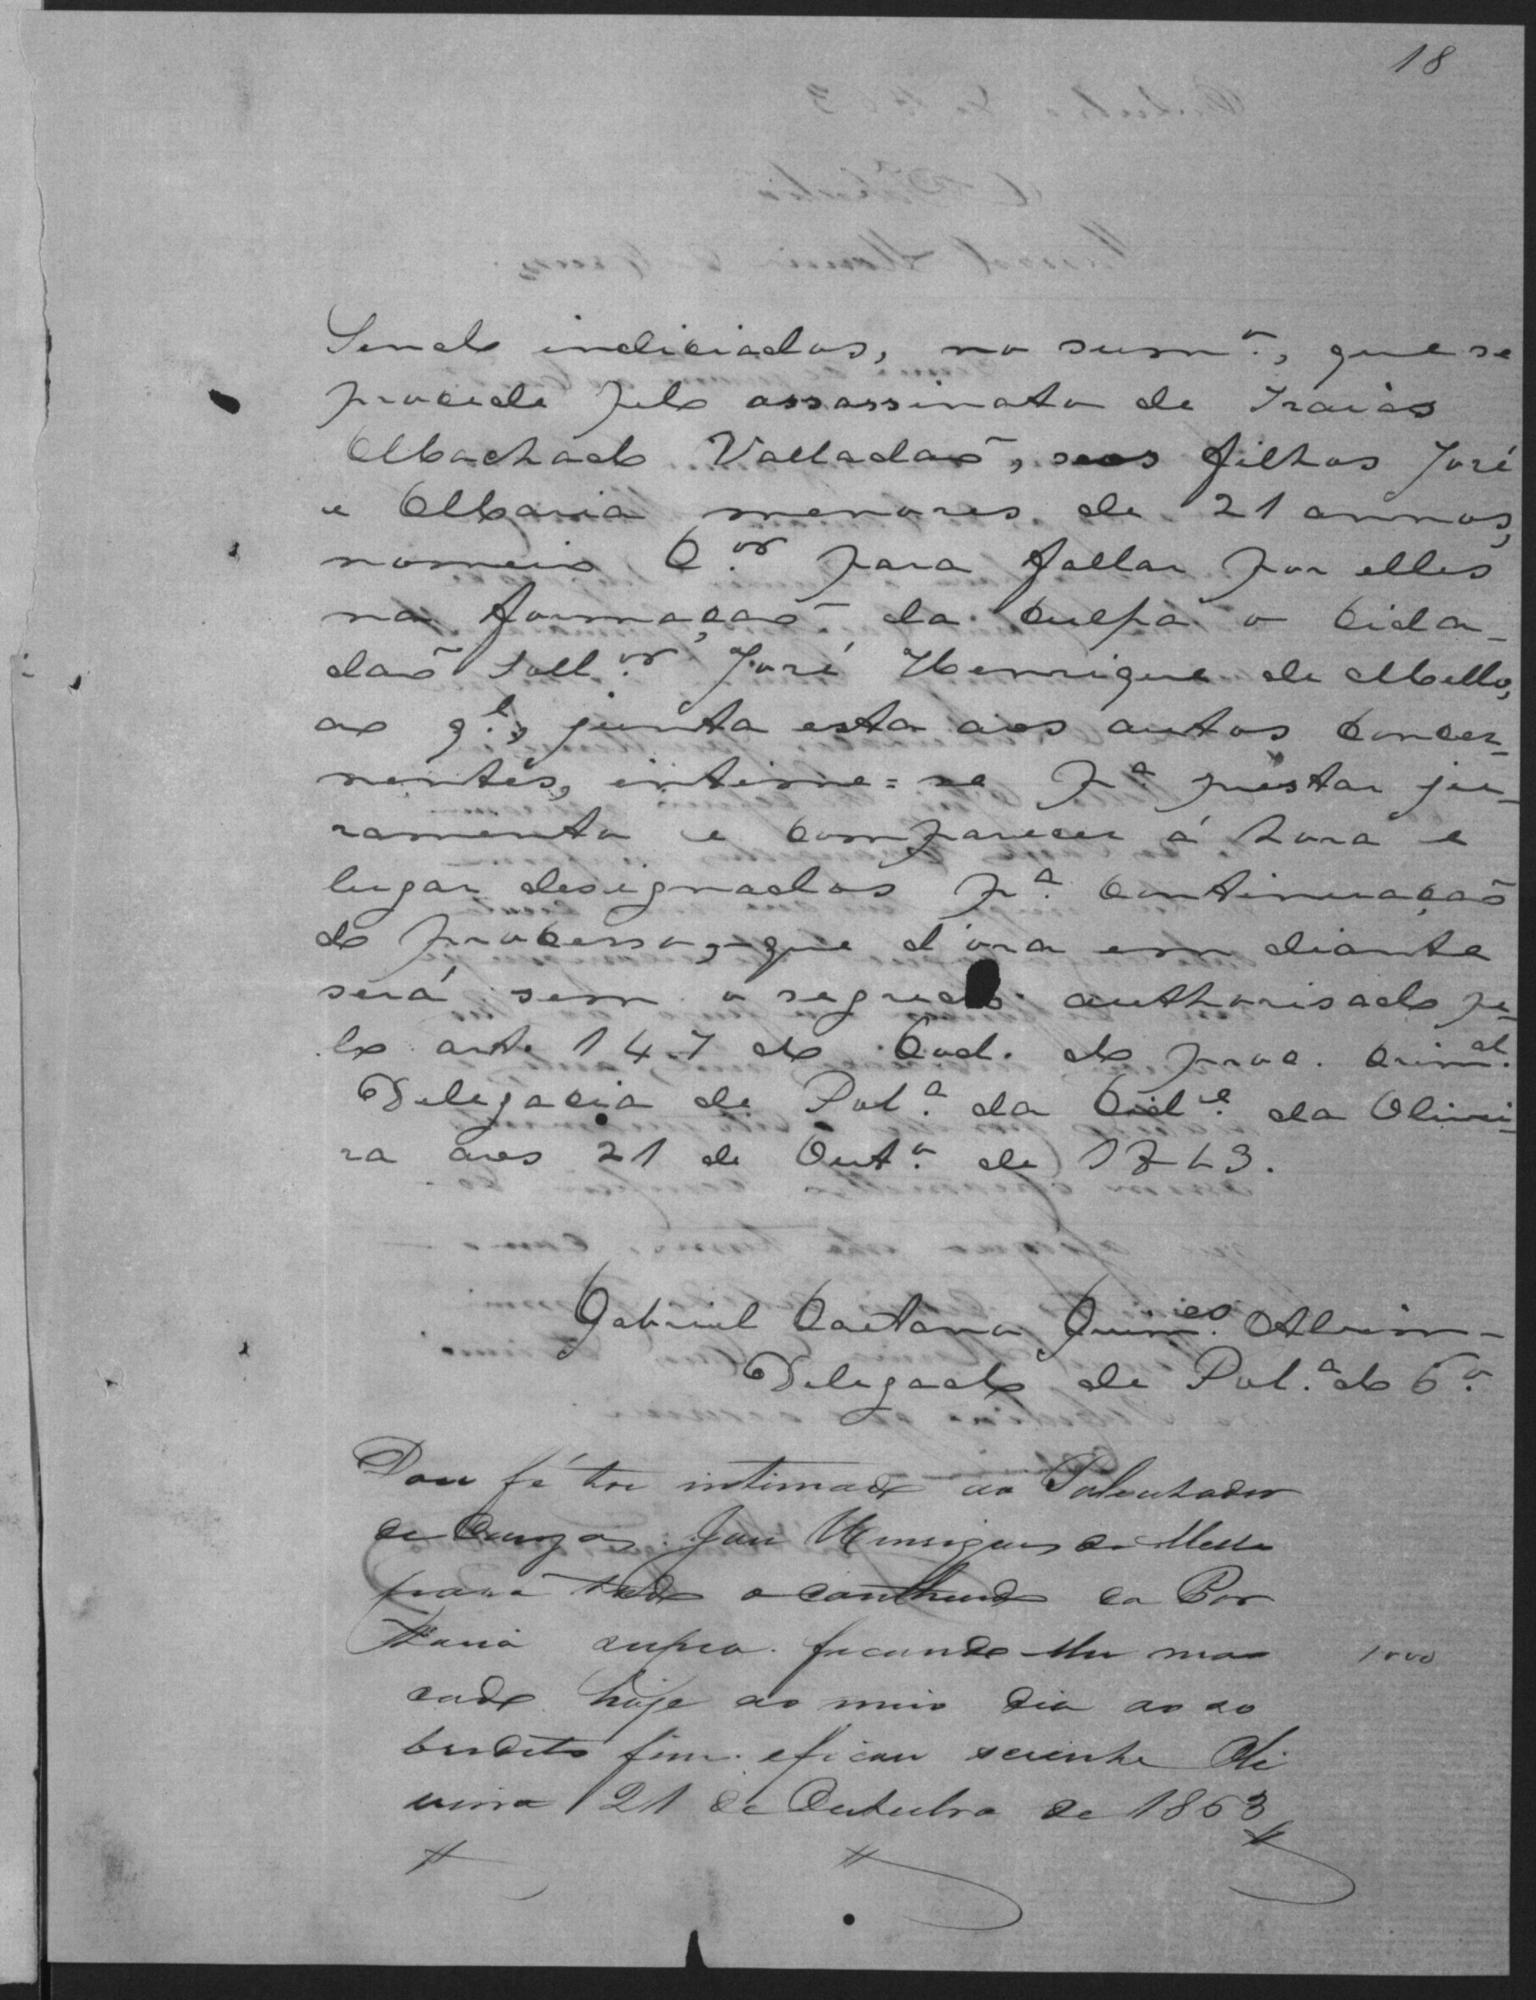 18
Sendo indiciados, no summ.º, que se
procede pelo assassinato de Izaias
Machado Valladaõ, seos filhos José
e Maria menores de 21 annos,
nomeio C.or para fallar por elles
na formaçaõ da culpa o Cida-
daõ Soll.or José Henrique de Mello,
ao q.l, junta esta aos autos concer-
nentes, intime=se p.a prestar ju-
ramento e comparecer á hora e
lugar designados p.a continuaçaõ
do processo, que d'ora em diante
será sem o segredo authorisado pe-
lo art. 147 do Cod. do proc. crim.al
Delegacia de Pol.a da Cid.e da Olivei-
ra aos 21 de Out.o de 1863.
Gabriel Caetano Guim.es Alvim-
Delegado de Pol.a do 6.o
Dou fé ter intimado ao Solicitador
José Henriques de Mello
para todo o contheudo da Por
taria supra ficando-lhe mar
cado hoje ao meio dia ao so
bredito fim e ficou sciente Oli
veira 21 de Outubro de 1863
1000